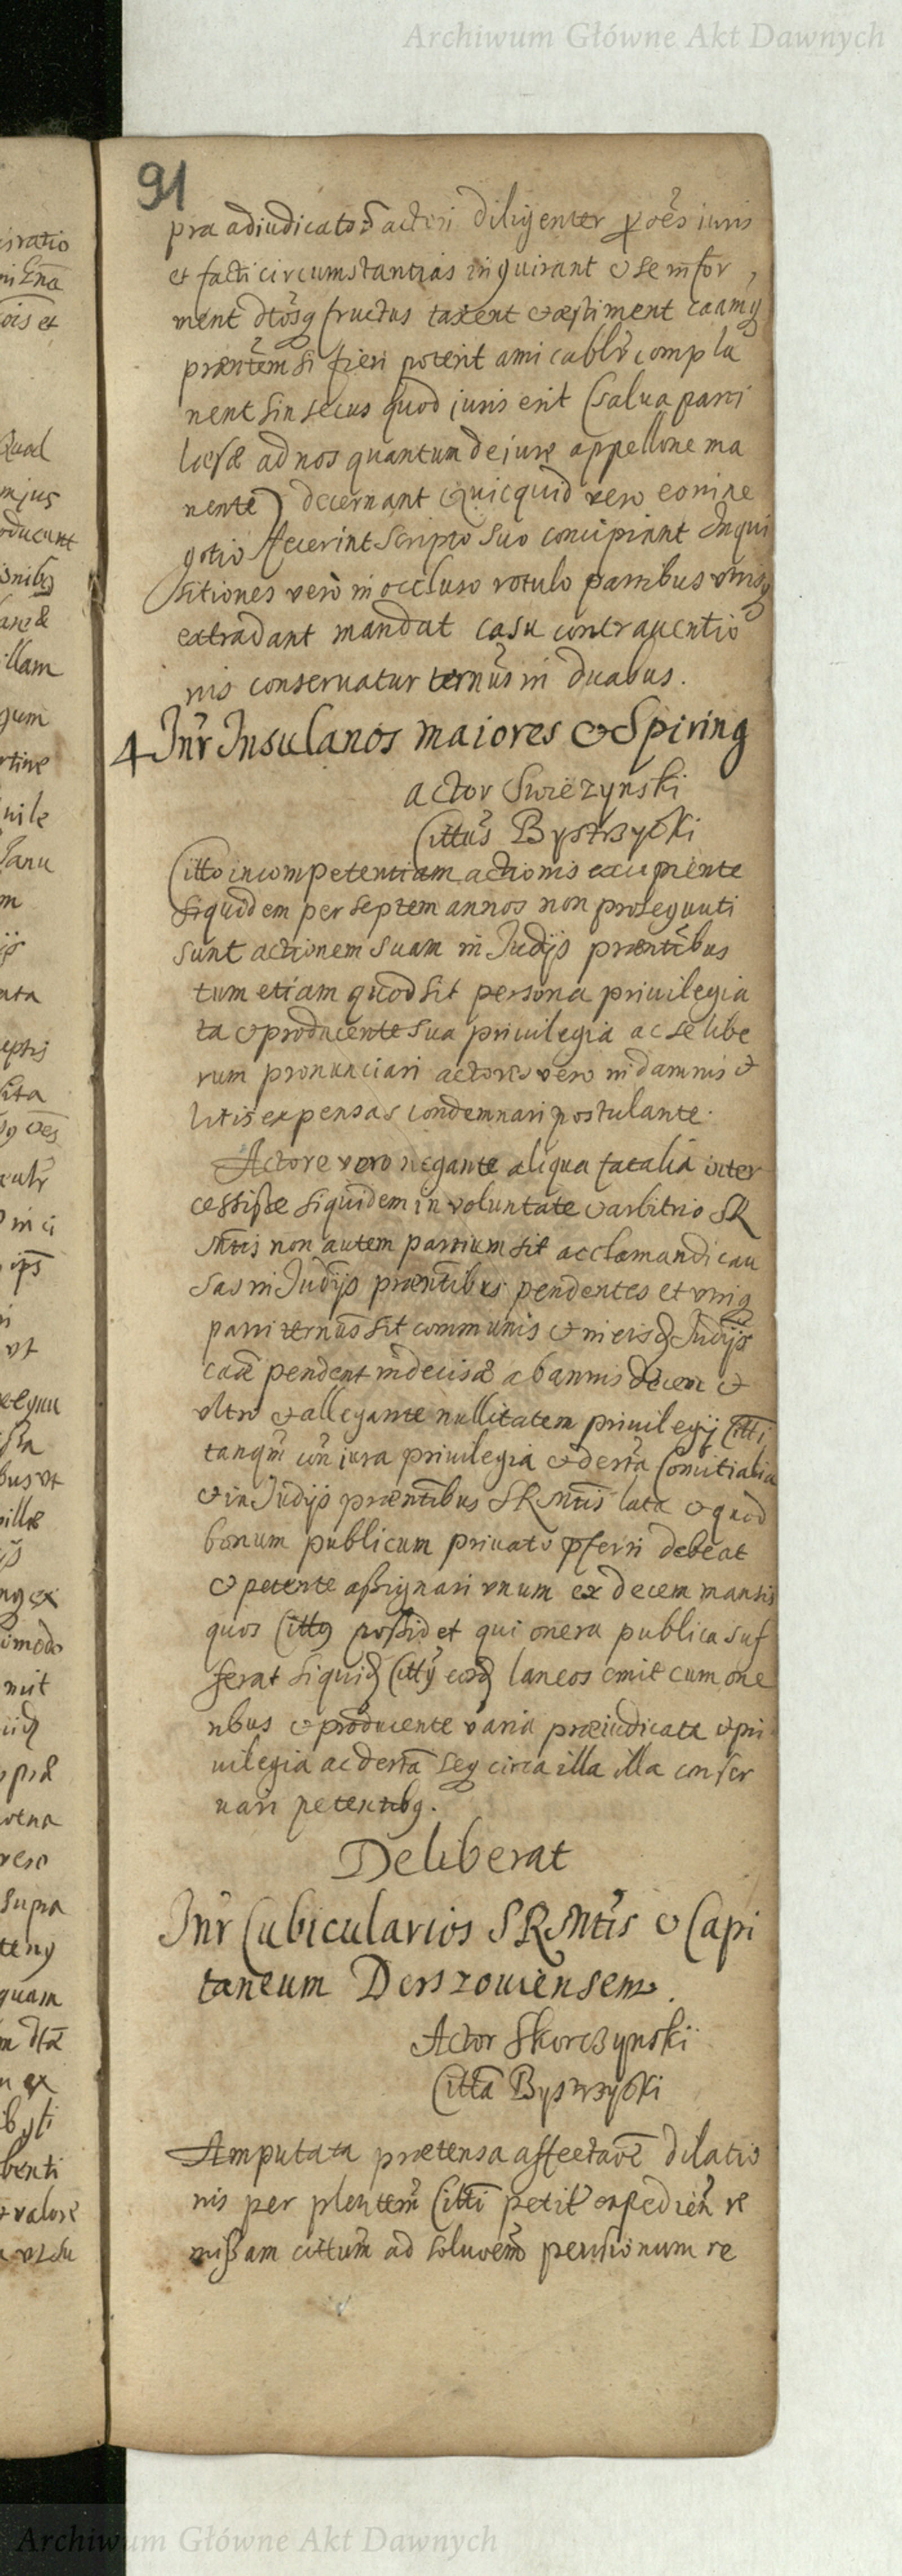 Archiwum Główne Akt Dawnych
91
præ adiudicatos actori diligenter p oēs iuris
et facti circumstantias inquirant & se infor
ment dtosq fructus taxent & æstiment caamq
præntem si fieri poterit amicablr compla
nent sin secus quod juris erit (salua parti
læsæ ad nos quantum de jure appellone ma
nente) decernant Quicquid vero eo in ne
gotio fecerint scripto suo concipiant Inqui
sitiones verò in occluso rotulo partibus vtrisq
extradant mandat casu contrauentio
nis conseruatur ternūs in duabus.
4 Intr Insulanos maiores & Spiring
actor Swiezynski
Cittūs Bystrzycki
Citto incompetentiam actionis excipiente
siquidem per septem annos non proseguuti
sunt actionem suam in Judijs præntibus
tum etiam quod sit persona priuilegia
ta & producente sua priuilegia ac se libe
rum pronunciari actores vero in damnis &
litis expensas condemnari postulante.
Actore vero negante aliqua fatalia inter
cessisse siquidem in voluntate & arbitrio SR
Mtis non autem partium sit acclamandi cau
sas in Judijs præntibus pendentes et vtriq
parti ternūs sit communis & in eisd Judijs
caæ pendent indecisæ ab annis decem &
vltro & allegante nullitatem priuilegij Citti
tanqm con iura priuilegia & derta Comitialia
& in Judijs præntibus SRMtis lata & quod
bonum publicum priuato pferri debeat
& petente assignari vnum ex decem mansis
quos Cittq possidet qui onera publica suf
ferat siquid Citty eosd laneos emit cum one
ribus & producente varia præiudicata & pri
uilegia ac derta seq circa illa illa conser
uari petentibq.
Deliberat
Intr Cubicularios SRMtis & Capi
taneum Derszouiensem.
Actor Skorczynski
Citta Bystrzycki
Amputata prætensa affectaōe dilatio
nis per plentem Citti petit expedien re
missam cittum ad soluendo pensionum re
Archiwum Główne Akt Dawnych